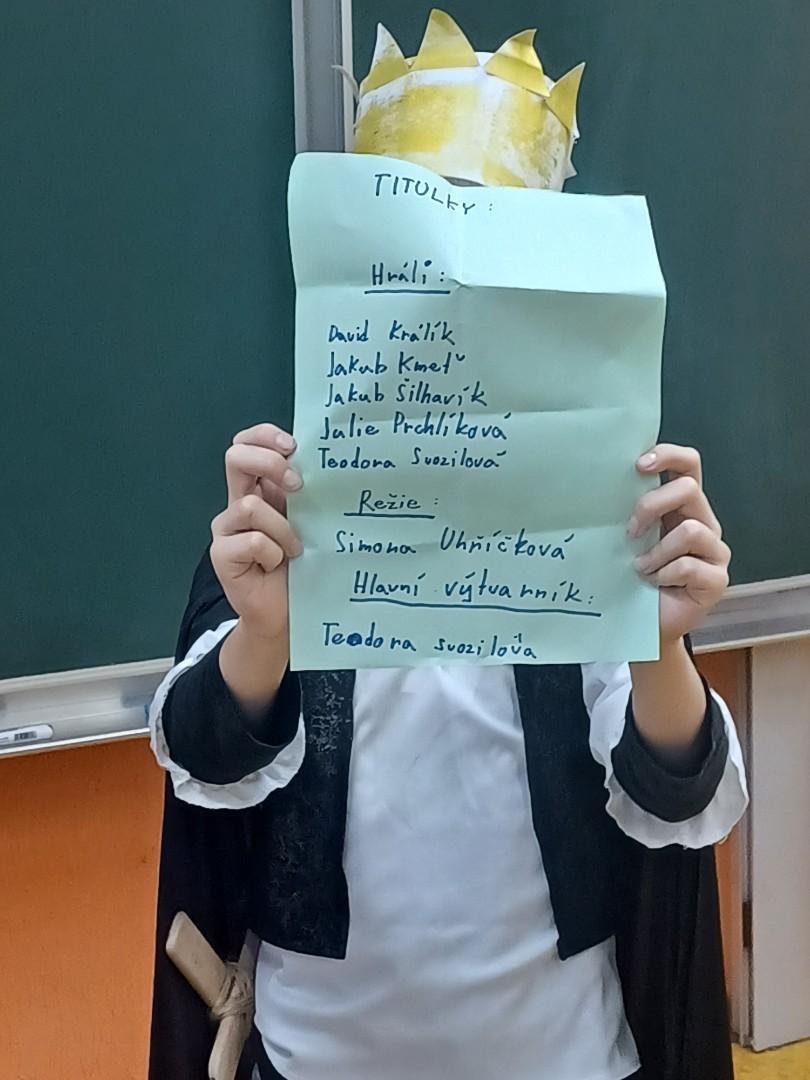 TITULKY:
Hráli:
David Králík
Jakub Kmeť
Jakub Šilhavík
Julie Prchlíková
Teodora Svozilová
Režie:
Simona Uhříčková
Hlavní výtvarník:
Teodora svozilová